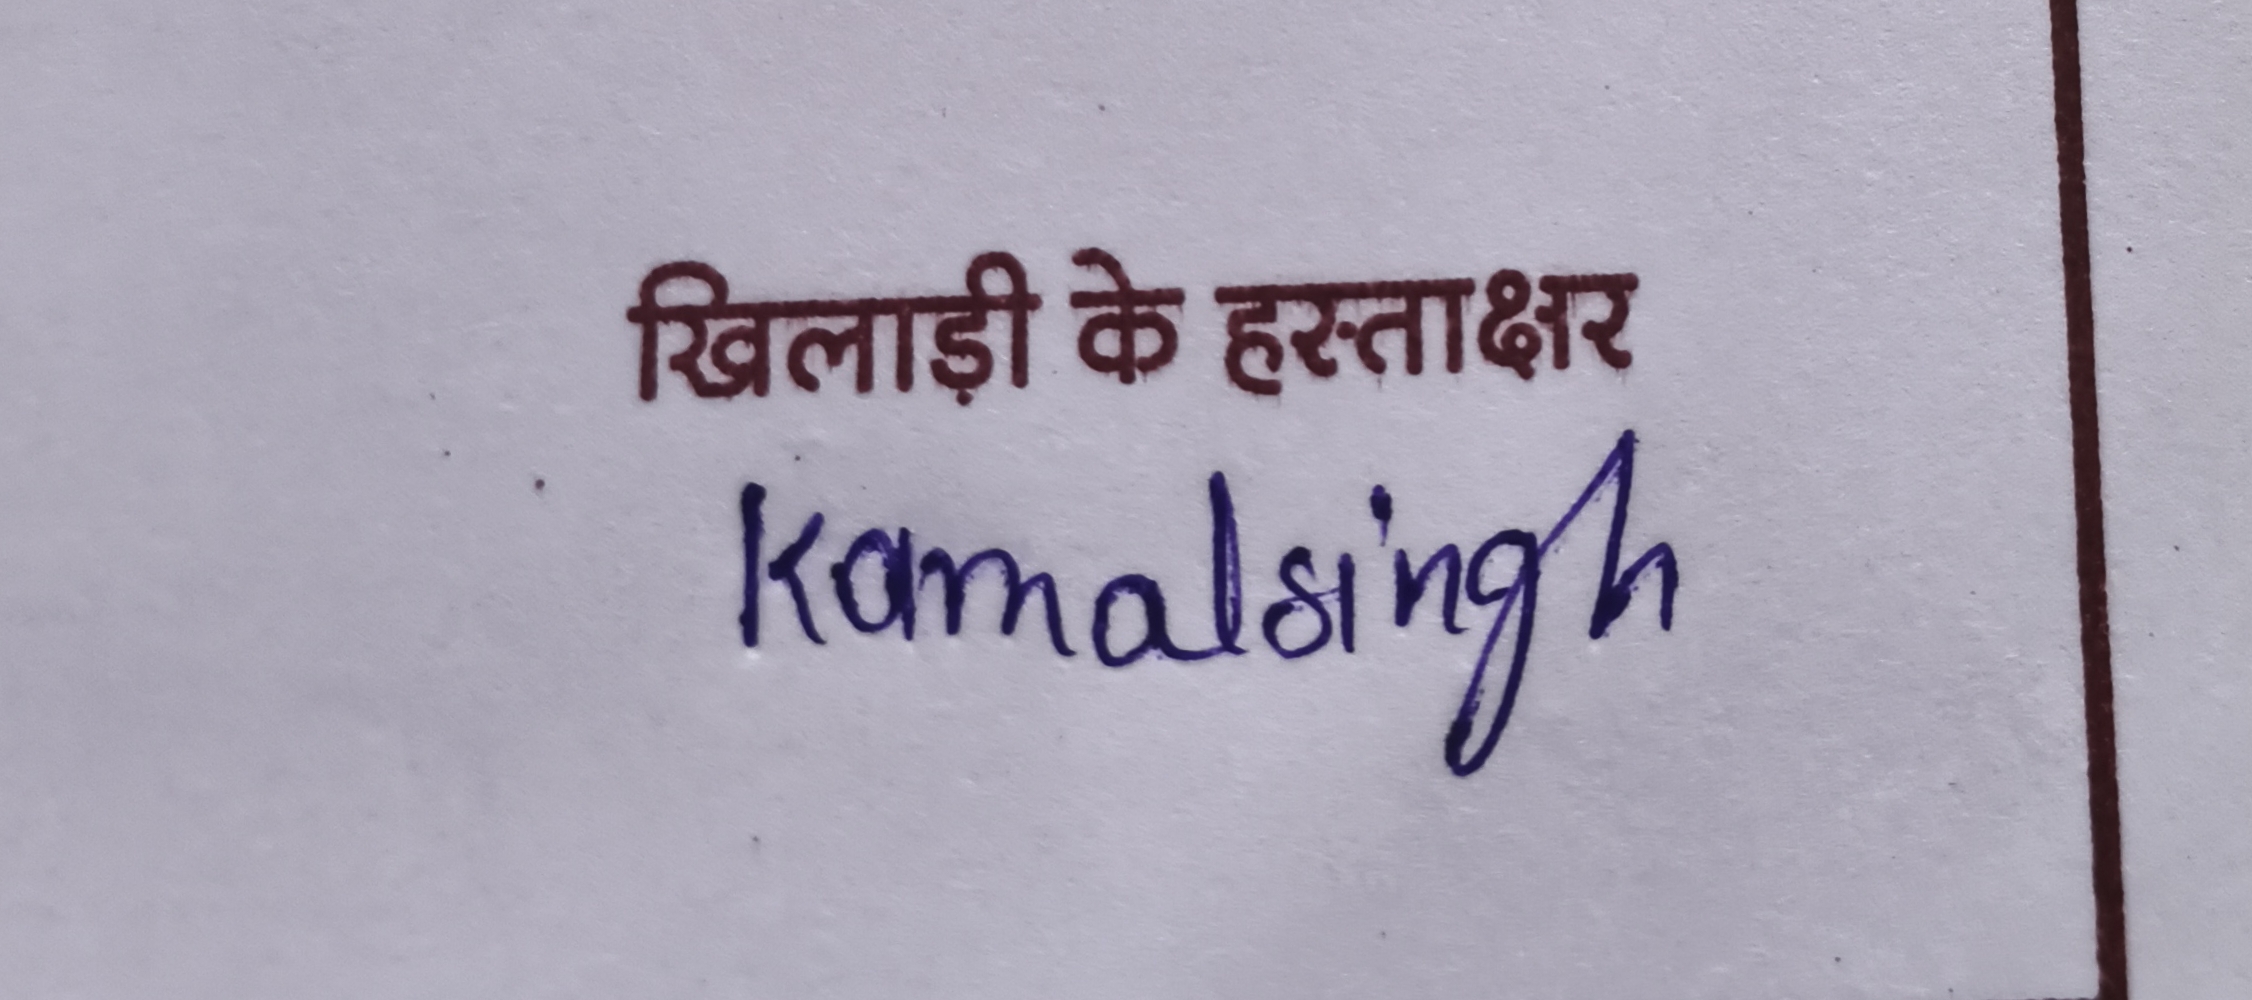 खिलाड़ी के हस्ताक्षर
Kamalsingh